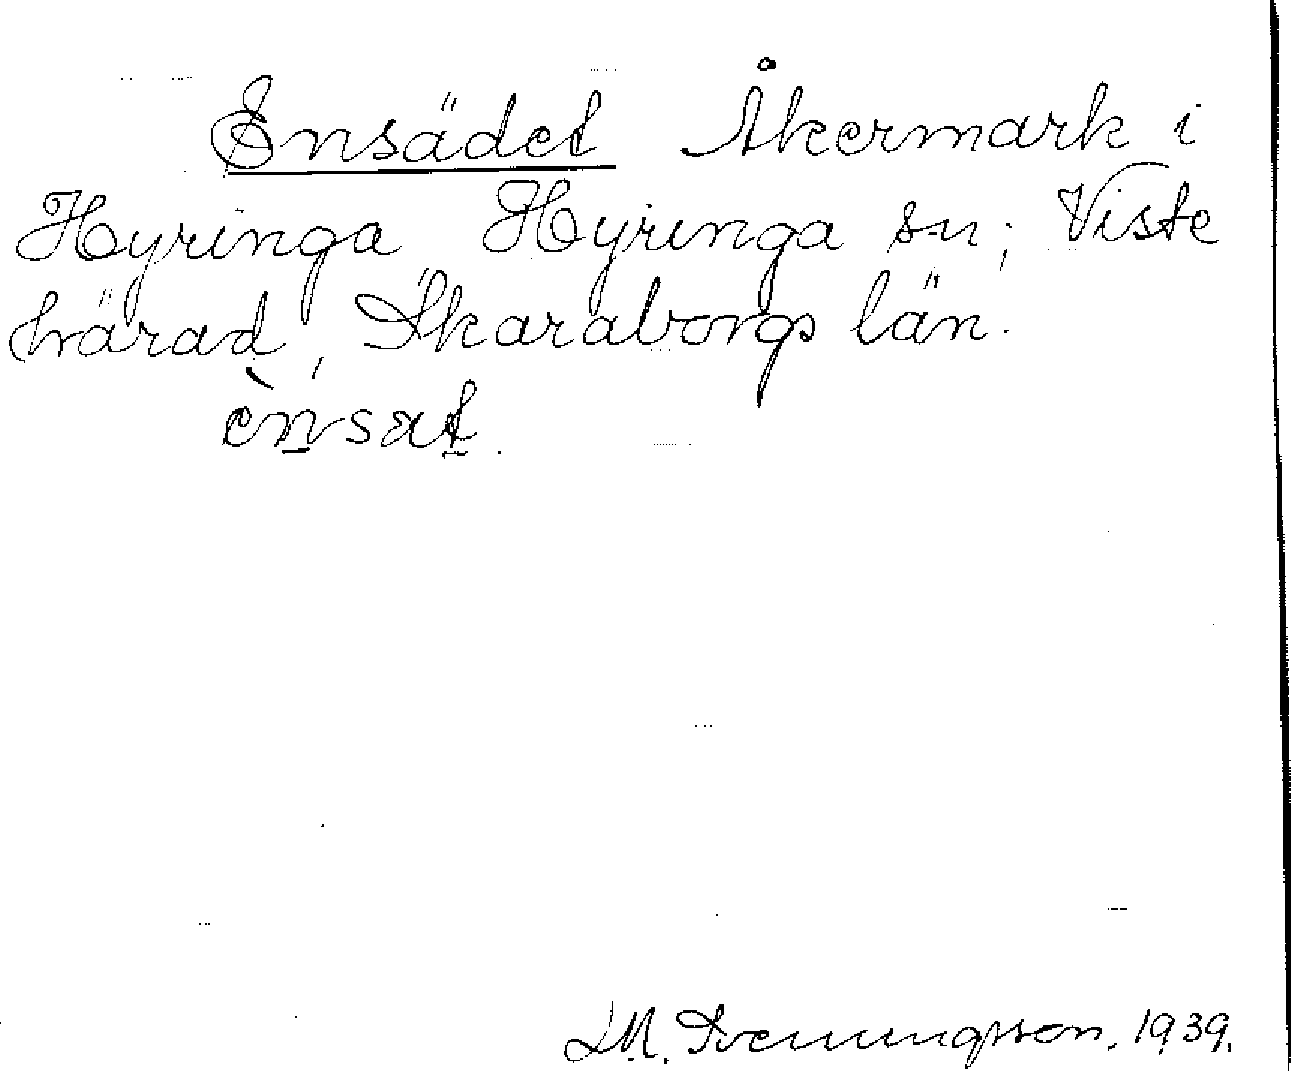 Ensädet Åkermark i
Hyringa Hyringa sn; Viste
härad, Skaraborgs län.
ènsat.
M. Svenungsson. 1939.